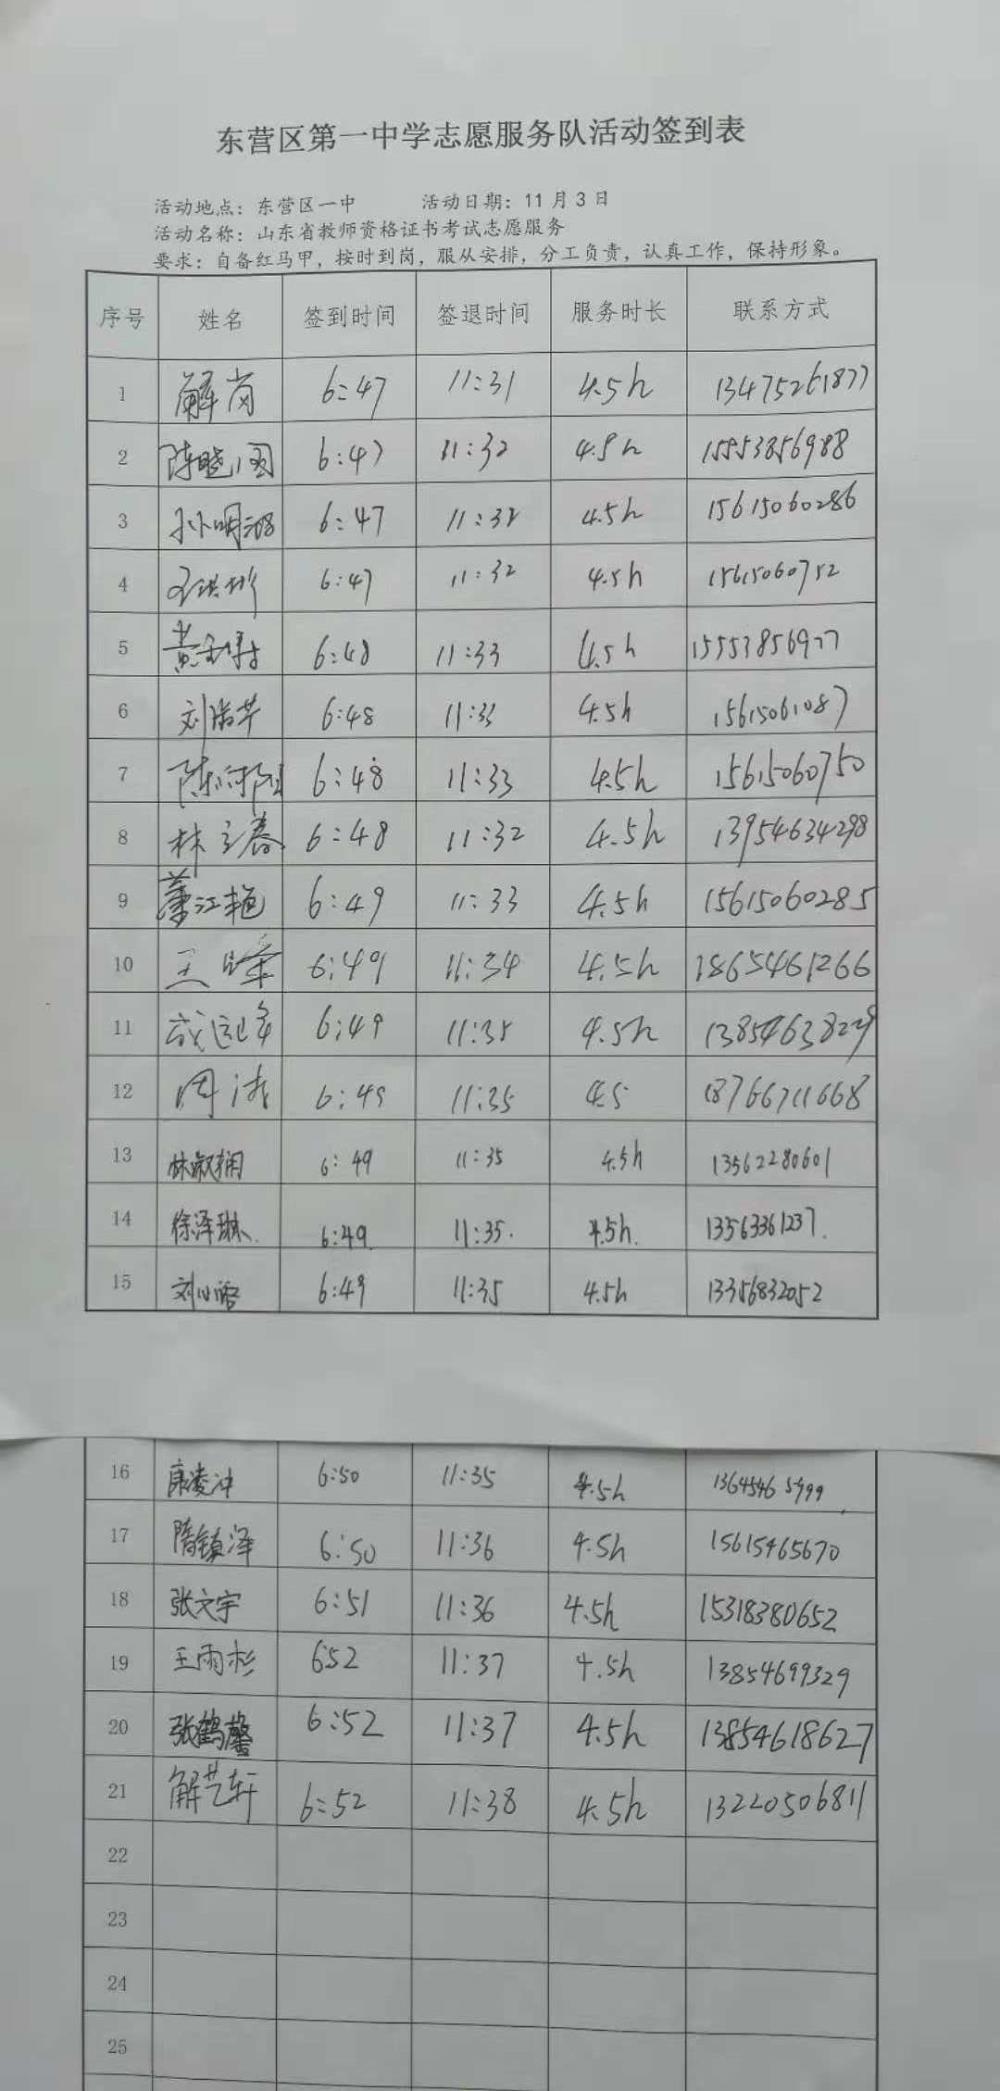 东营区第一中学志愿服务队活动签到表
活动地点：东营区一中 活动日期：11月3日
活动名称：山东省教师资格证书考试志愿服务
要求：自备红马甲，按时到岗，服从安排，分工负责，认真工作，保持形象。
序号 姓名 签到时间 签退时间 服务时长 联系方式
1 解岗 6:47 11:31 4.5h 13475261877
2 6:47 11:32 4.5h 15553856988
3 6:47 11:32 4.5h 15615060286
4 6:47 11:32 4.5h 15615060752
5 6:48 11:33 4.5h 15553856977
6 6:48 11:33 4.5h 15615061087
7 6:48 11:33 4.5h 15615060750
8 林立春 6:48 11:32 4.5h 13954634298
9 董江艳 6:49 11:33 4.5h 15615060285
10 王峰 6:49 11:34 4.5h 18654461266
11 6:49 11:35 4.5h 13854638229
12 周涛 6:49 11:35 4.5 18766711668
13 林淑娴 6:49 11:35 4.5h 13562280601
14 徐泽琳. 6:49. 11:35. 4.5h. 13563361237.
15 6:49 11:35 4.5h 13356832052
16 康凌冲 6:50 11:35 4.5h
17 隋镇泽 6:50 11:36 4.5h 15615465670
18 张文宇 6:51 11:36 4.5h 15318380652
19 王雨杉 652 11:37 4.5h 13854699329
20 张鹤馨 6:52 11:37 4.5h 13854618627
21 解艺轩 6:52 11:38 4.5h 13220506811
22
23
24
25